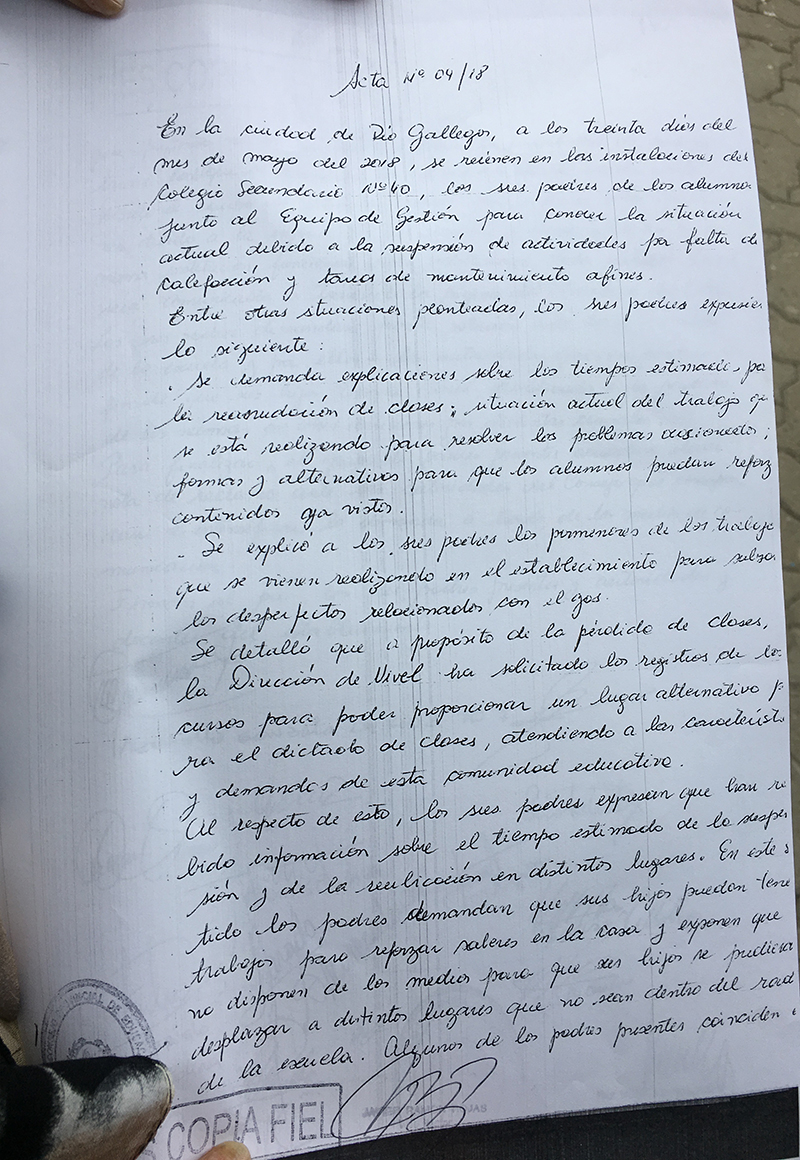 Acta Nº 04/18
En la ciudad de Río Gallegos, a los treinta días del
mes de mayo del 2018, se reúnen en las instalaciones del
Colegio Secundario Nº 40, los sres. padres de los alumno
junto al Equipo de Gestión para conocer la situación
actual debido a la suspensión de actividades por falta de
calefacción y tareas de mantenimiento afines.
Entre otras situaciones planteadas, los sres padres expusie
lo siguiente:
. Se demanda explicaciones sobre los tiempos estimados pa
la reanudación de clases; situación actual del trabajo qu
se está realizando para resolver los problemas ocasionados;
formas y alternativas para que los alumnos puedan reforz
contenidos ya vistos.
- Se explicó a los sres padres los pormenores de los trabajo
que se vienen realizando en el establecimiento para subsa
los desperfectos relacionados con el gas.
Se detalló que a propósito de la pérdida de clases,
la Dirección de Nivel ha solicitado los registros de lo
cursos para poder proporcionar un lugar alternativo p
ra el dictado de clases, atendiendo a las característi
y demandas de esta comunidad educativa.
Al respecto de esto, los sres padres expresan que han re
bido información sobre el tiempo estimado de la suspen
sión y de la reubicación en distintos lugares. En este s
tido los padres demandan que sus hijos puedan tene
trabajos para reforzar saberes en la casa y exponen que
no disponen de los medios para que sus hijos se pudiera
desplazar a distintos lugares que no sean dentro del radi
de la escuela. Algunos de los padres presentes coinciden
COPIA FIEL